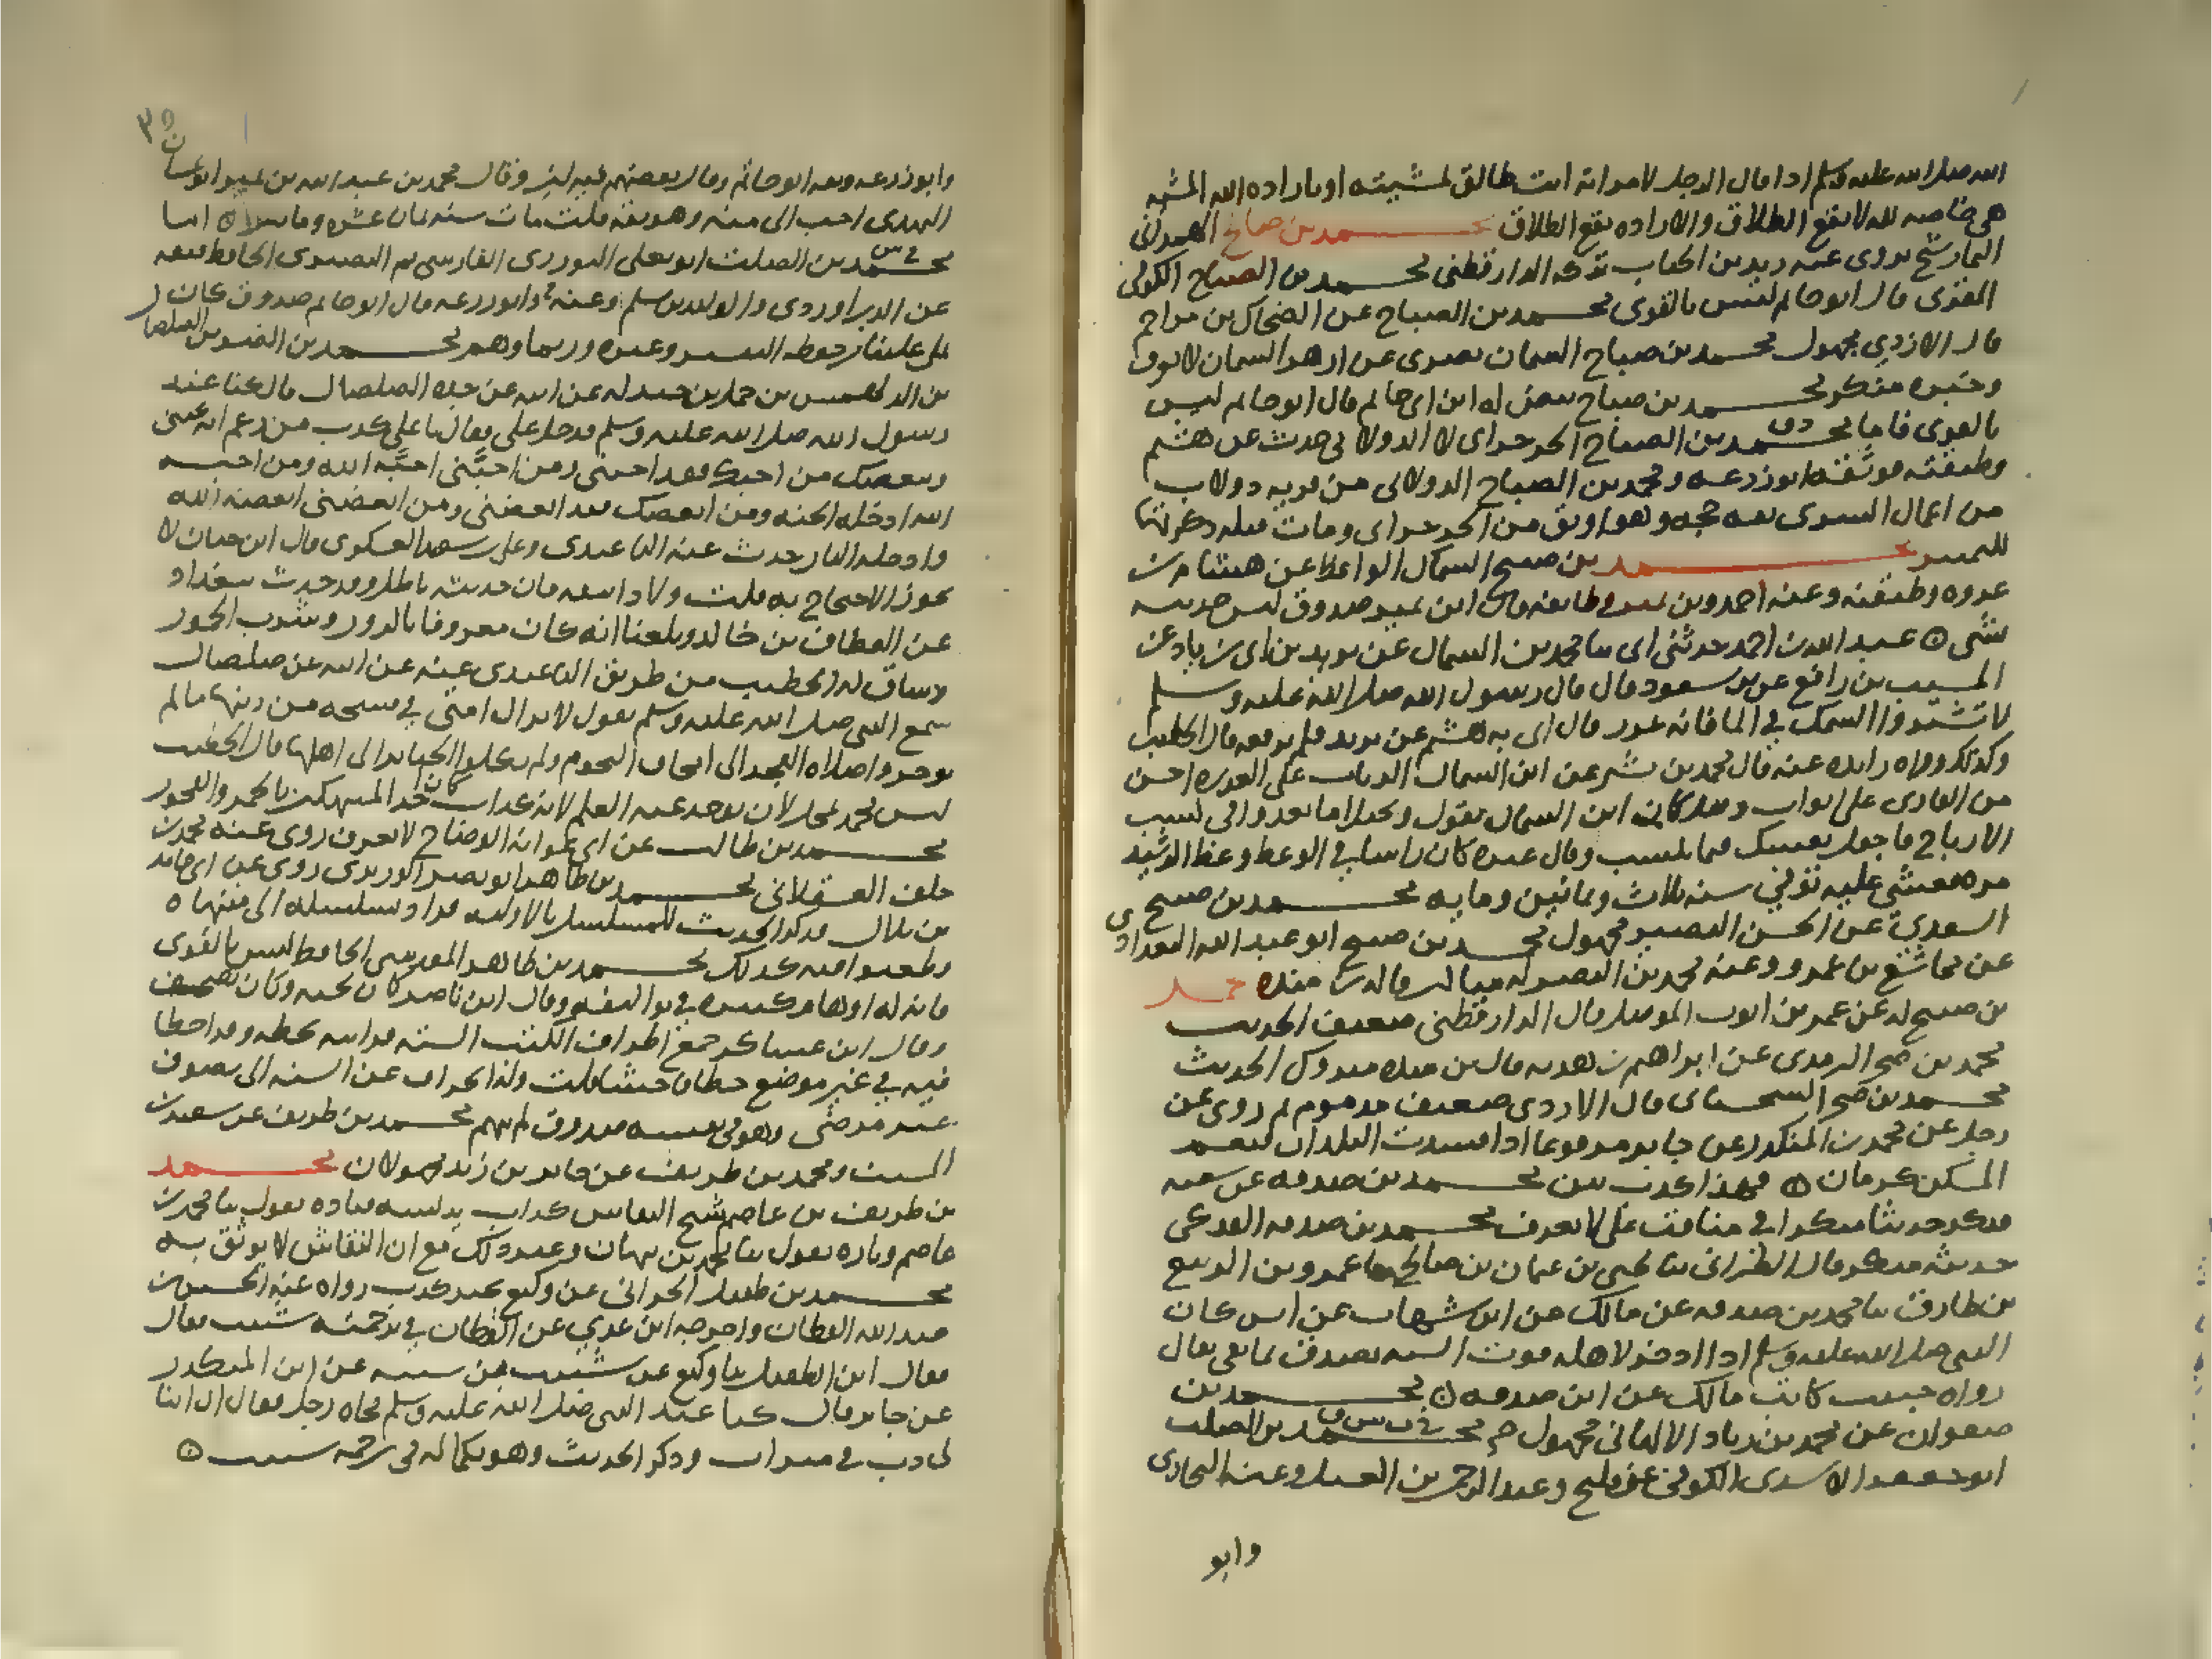 الله صلى الله عليه وسلم اذا قال الرجل لامراته انت طالق لمشيئته او بارادة الله المشيه
هي خاصه لله لا يقع الطلاق والاراده يقع الطلاق محمد بن صالح الهمداني
التمار شيخ يروى عنه زيد بن الحباب تركه الدارقطني محمد بن الصباح الكوفي
المقرى قال ابو حاتم ليس بالقوى محمد بن الصباح عن الضحاك بن مزاحم
قال الازدي مجهول محمد بن صباح السمان بصرى عن ازهر السمان لا يعرف
وخبره منكر محمد بن صباح بيض له ابن ابي حاتم قال ابو حاتم ليس
بالقوى فاما محمد بن الصباح الجرجراى لا الدولابي حدث عن هشيم
وطبقته فوثقه ابو زرعه ومحمد بن الصباح الدولابي من قريه دولاب
من اعمال الرى ثقه حجه وهو اوثق من الجرجراى ومات قبله ذكرتهما
للتمييز محمد بن صبيح السماك الواعظ عن هشام بن
عروه وطبقته وعنه احمد وبن نمير وطايفه قال ابن نمير صدوق ليس حديثه
بشي عبد الله بن احمد حدثني ابي ثنا محمد بن السماك عن يزيد بن ابي زياد عن
المسيب بن رافع عن بن مسعود قال قال رسول الله صلى الله عليه وسلم
لا تشتروا السمك في الما فانه غرر قال ابي به هشيم عن يزيد فلم يرفعه قال الخطيب
وكذلك رواه زايده عنه قال محمد بن بشر عن ابن السماك الذباب على العذره احسن
من القارى على ابواب وكان ابن السماك يقول
الارباح فاجعل نفسك فيما تكتسب وقال غيره كان راسا في الوعظ وعظ الرشيد
مره فغشي عليه توفي سنه ثلاث وثمانين ومايه محمد بن صبيح
السعدي عن الحسن البصري مجهول محمد بن صبيح ابو عبد الله البغدادي
عن مجاشع بن عمرو وعنه محمد بن النضر له مناكير قاله بن منده محمد
بن صبيح له عن عمر بن ايوب الموصلى قال الدارقطني ضعيف الحديث
محمد بن صخر الترمدى عن ابراهيم بن هدبه قال بن منده متروك الحديث
محمد بن صخر السجستاني قال الازدى ضعيف مذموم ثم روى عن
رجل عن محمد بن المنكدر عن جابر مرفوعا اذا فسدت البلدان فنعم
المسكن كرمان فهذا كذب بين محمد بن صدقه عن
فذكر حديثا منكرا في مناقب علي لا يعرف محمد بن صدقه الفدكي
حديثه منكر قال الطبراني ثنا يحيى بن عثمان بن صالح ثنا عمرو بن الربيع
بن طارق ثنا محمد بن صدقه عن مالك عن ابن شهاب عن انس كان
النبي صلى الله عليه وسلم اذا ادخر لاهله قوت السنه تصدق بما بقي يقال
رواه حبيب كاتب مالك عن ابن صدقه محمد بن
صفوان عن محمد بن زياد الالهاني مجهول محمد بن الصلت
ابو جعفر الاسدى الكوفي عن فليح وعبد الرحمن بن الغسيل وعنه البخارى
وابو
٣٥
وابو زرعه وثقه ابو حاتم وقال بعضهم فيه لين وقال محمد بن عبد الله بن نمير ابو غسان
النهدى احب الى منه وهو ثقه قلت مات سنه ثمان عشره ومايتين اما
محمد بن الصلت ابو يعلى التوزى الفارسى ثم البصرى الحافظ فثقه
عن الدراوردى والوليد بن مسلم وعنه خ وابو زرعه قال ابو حاتم صدوق كان
يملي علينا من حفظه التفسير وغيره وربما وهم محمد بن الضو بن الصلصال
بن الدلهمس بن حمل بن جندله عن ابيه عن جده الصلصال قال كنا عند
رسول الله صلى الله عليه وسلم فدخل علي فقال يا علي كذب من زعم انه يحبني
ويبغضك من احبك فقد احبني ومن احبني احبه الله ومن احبه
الله ادخله الجنه ومن ابغضك فقد ابغضني ومن ابغضني ابغضه الله
وادخله النار حدث عنه الباغندى وعلي بن سعيد العسكرى قال ابن حبان لا
يجوز الاحتجاج به قلت ولا داسه فان حديثه باطل وقد حدث ببغداد
عن العطاف بن خالد وبلغنا انه كان معروفا بالزور وشرب الخمور
وساق له الخطيب من طريق الباغندى عنه عن ابيه عن صلصال
سمع النبي صلى الله عليه وسلم يقول لا تزال امتي في فسحه من دينها ما لم
يوخروا صلاه الفجر الى امحاق النجوم ولم يكلوا الجنايز الى اهلها قال الخطيب
ليس محمد بمحل لان يوخذ عنه العلم لانه كذاب كان احد المتهتكين بالخمر والفجور
محمد بن طالب عن ابي عوانه الوضاح لا يعرف روى عنه محمد بن
خلف العسقلاني محمد بن طاهر ابو نصر الوزيرى روى عن ابي حامد
بن بلال فذكر الحديث المسلسل بالاوليه فزاد تسلسله الى منتهاه
وطعنوا فيه كذلك محمد بن طاهر المقدسي الحافظ ليس بالقوى
فانه له اوهام كثيره في تواليفه وقال ابن ناصر كان لحنه وكان يصحف
وقال ابن عساكر جمع اطراف الكتب السته فرايته بخطه وقد اخطا
فيه في غير موضع خطا فاحشا قلت وله انحراف عن السنه الى تصوف
غير مرضي وهو في نفسه صدوق لم يتهم محمد بن طريف عن سعيد بن
المسيب ومحمد بن طريف عن جابر بن زيد مجهولان محمد
بن طريف بن عاصم شيخ النقاش كذاب يدلسه فتاره يقول ثنا محمد بن
عاصم وتاره يقول ثنا محمد بن نبهان وغير ذلك مع ان النقاش لا يوثق به
محمد بن طفيل الحراني عن وكيع بخبر كذب رواه عنه الحسين بن
عبد الله القطان واخرجه ابن عدي عن القطان في ترجمه شبيب فقال
فقال ابن الطفيل ثنا وكيع عن شبيب بن شيبه عن ابن المنكدر
عن جابر قال كنا عند النبي صلى الله عليه وسلم فجاه رجل فقال ان ابنا
لي دب في ميزاب وذكر الحديث وهو بكماله في ترجمه شبيب